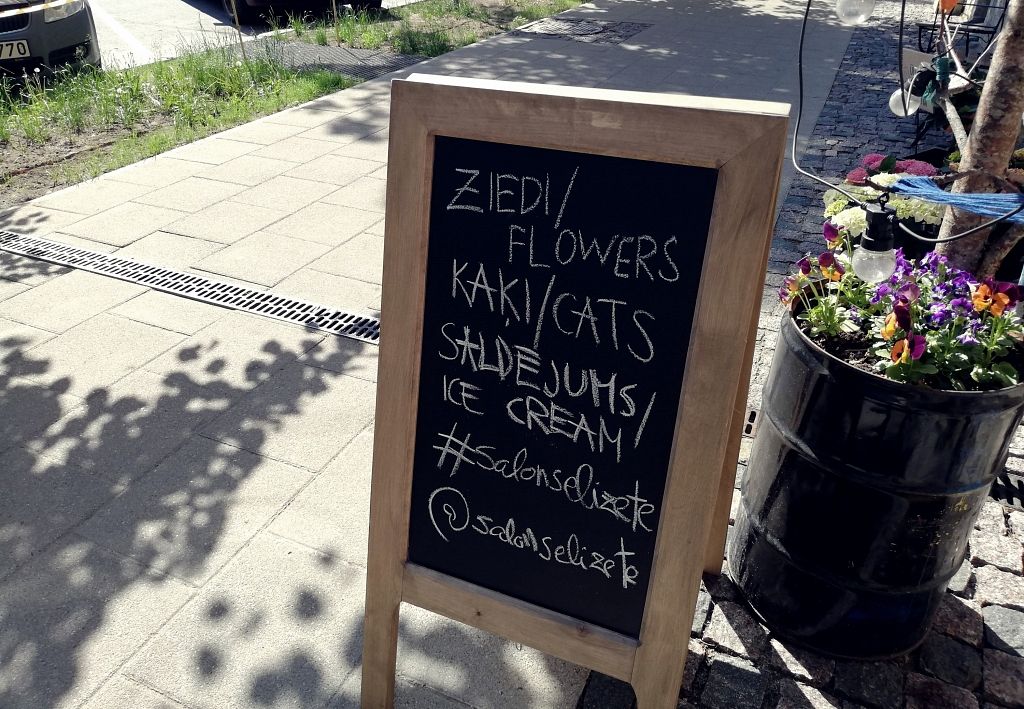 770
ZIEDI/
FLOWERS
KAĶI/CATS
SALDĒJUMS/
ICE CREAM
#salonselizete
@salonselizete